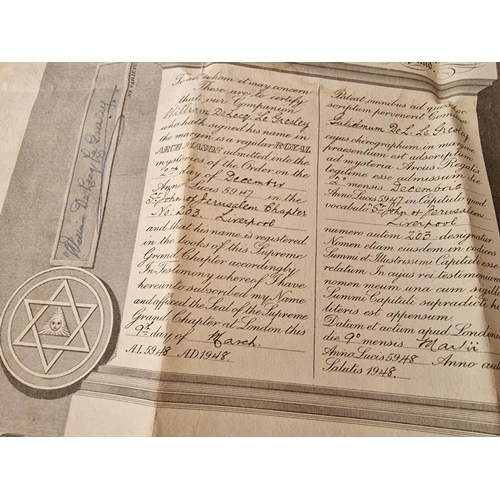 To all whom it may concern
These are to certify
that our Companion
William DeLecq Le Gresley
who hath signed his name in
the margin is a regular ROYAL
ARCH MASON admitted into the
mysteries of the Order on the
day of December
Anno Lucis 5947 in the
St John of Jerusalem Chapter
No. 203, Liverpool
and that his name is registered
in the books of this Supreme
Grand Chapter accordingly
In Testimony whereof I have
hereunto subscribed my Name
and affixed the Seal of the Supreme
Grand Chapter at London this
9th day of March.
A.L. 5948. A.D. 1948.
Pateat omnibus ad quos
scriptum pervenerit Comitem
DeL. Le Gresley
cujus chirographum in margine
praesentum est adscriptum
ad mysteria Arcus Regalis
legitime esse admissum die
2º mensis Decembris
Anno Lucis 5947 in Capitulo quod
vocabulo St John of Jerusalem
Liverpool
numero autem 203 designatur
Nomen etiam ejusdem in codices
Summi et Illustrissimi Capituli esse
relatum In cujus rei testimonium
nomen meum una cum sigillo
Summi Capituli supradicti his
literis est appensum.
Datum et actum apud Londinum
die 9º mensis Martii
Anno Lucis 5948 Anno autem
Salutis 1948.